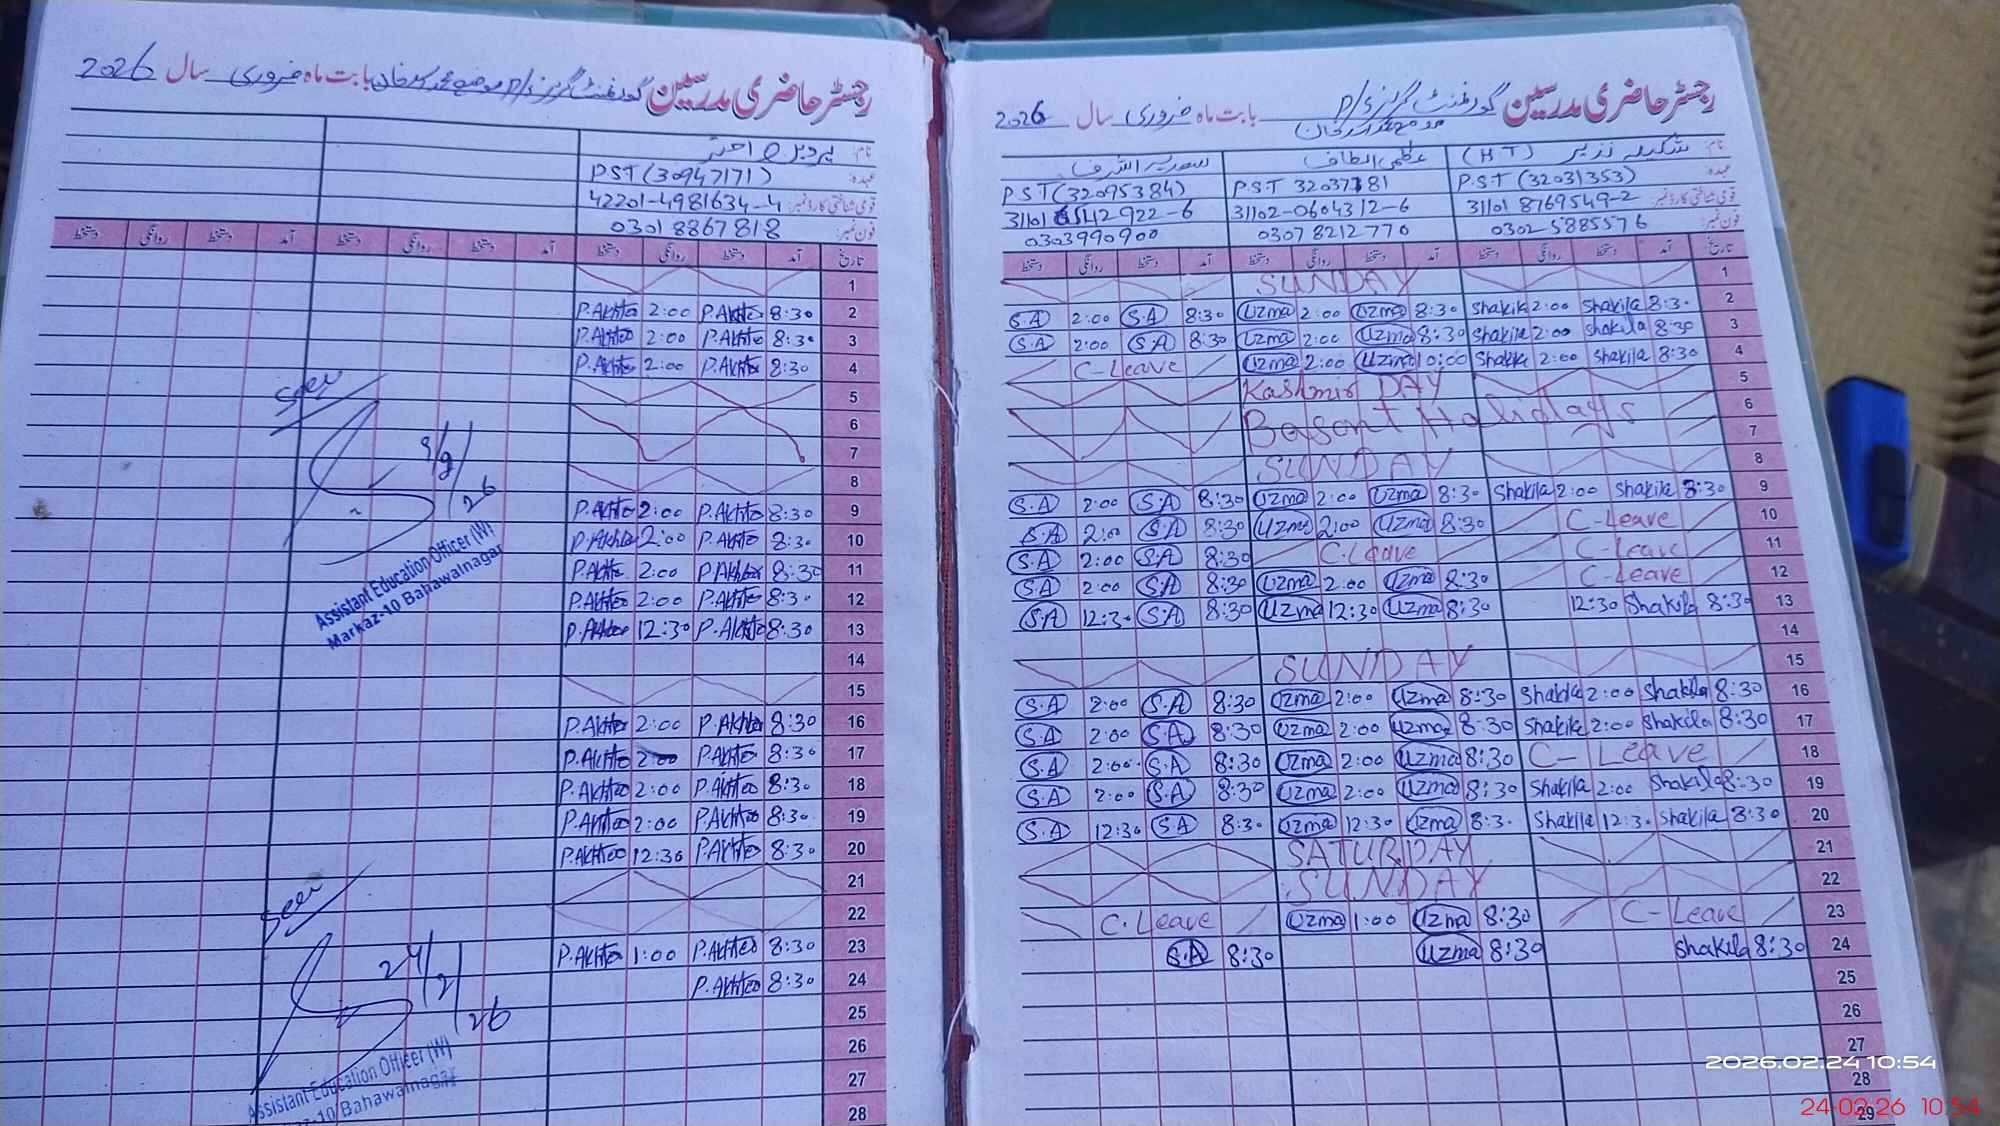 رجسٹر حاضری مدرسین گورنمنٹ گرلز P/S بابت ماہ فروری سال 2026
نام: پروین اختر
عہدہ: PST (30947171)
قومی شناختی کارڈ نمبر: 42201-4981634-4
فون نمبر: 0301 8867818
تاریخ آمد دستخط روانگی دستخط آمد دستخط روانگی دستخط آمد دستخط روانگی دستخط
1
P.Akhter 2:00 P.Akhter 8:30 2
P.Akhter 2:00 P.Akhter 8:30 3
P.Akhter 2:00 P.Akhter 8:30 4
5
6
7
8
P.Akhter 2:00 P.Akhter 8:30 9
P.Akhter 2:00 P.Akhter 8:30 10
P.Akhter 2:00 P.Akhter 8:30 11
P.Akhter 2:00 P.Akhter 8:30 12
P.Akhter 12:30 P.Akhter 8:30 13
14
15
P.Akhter 2:00 P.Akhter 8:30 16
P.Akhter 2:00 P.Akhter 8:30 17
P.Akhter 2:00 P.Akhter 8:30 18
P.Akhter 2:00 P.Akhter 8:30 19
P.Akhter 12:30 P.Akhter 8:30 20
21
22
P.Akhter 1:00 P.Akhter 8:30 23
P.Akhter 8:30 24
25
26
27
28
Seen
9/2/26
Assistant Education Officer (W)
Markaz-10 Bahawalnagar
Seen
24/2/26
Assistant Education Officer (W)
-10 Bahawalnagar
رجسٹر حاضری مدرسین گورنمنٹ گرلز P/S بابت ماہ فروری سال 2026
نام: شکیلہ نزیر (HT) عظمیٰ الطاف سعدیہ اشرف
عہدہ: PST (32031353) PST 32037381 PST (32095384)
قومی شناختی کارڈ نمبر: 31101 8769549-2 31102-0604312-6 31101 6542922-6
فون نمبر: 0302-5885576 0307 8212770 0303990900
تاریخ آمد دستخط روانگی دستخط آمد دستخط روانگی دستخط آمد دستخط روانگی دستخط
SUNDAY 1
S.A 2:00 S.A 8:30 Uzma 2:00 Uzma 8:30 Shakila 2:00 Shakila 8:30 2
S.A 2:00 S.A 8:30 Uzma 2:00 Uzma 8:30 Shakila 2:00 Shakila 8:30 3
C-Leave Uzma 2:00 Uzma 10:00 Shakila 2:00 Shakila 8:30 4
Kashmir DAY 5
Basant Holidays 6
7
SUNDAY 8
S.A 2:00 S.A 8:30 Uzma 2:00 Uzma 8:30 Shakila 2:00 Shakila 8:30 9
S.A 2:00 S.A 8:30 Uzma 2:00 Uzma 8:30 C-Leave 10
S.A 2:00 S.A 8:30 C.Leave C-Leave 11
S.A 2:00 S.A 8:30 Uzma 2:00 Uzma 8:30 C-Leave 12
S.A 12:30 S.A 8:30 Uzma 12:30 Uzma 8:30 12:30 Shakila 8:30 13
14
SUNDAY 15
S.A 2:00 S.A 8:30 Uzma 2:00 Uzma 8:30 Shakila 2:00 Shakila 8:30 16
S.A 2:00 S.A 8:30 Uzma 2:00 Uzma 8:30 Shakila 2:00 Shakila 8:30 17
S.A 2:00 S.A 8:30 Uzma 2:00 Uzma 8:30 C-Leave 18
S.A 2:00 S.A 8:30 Uzma 2:00 Uzma 8:30 Shakila 2:00 Shakila 8:30 19
S.A 12:30 S.A 8:30 Uzma 12:30 Uzma 8:30 Shakila 12:30 Shakila 8:30 20
SATURDAY 21
SUNDAY 22
C.Leave Uzma 1:00 Uzma 8:30 C-Leave 23
S.A 8:30 Uzma 8:30 Shakila 8:30 24
25
26
27
28
29
2026.02.24 10:54
24-02-26 10:54